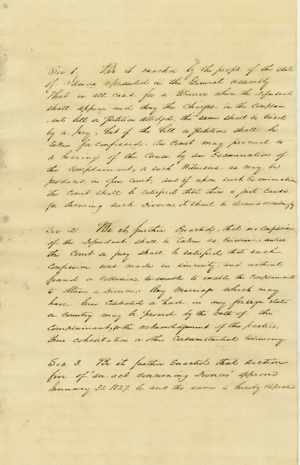 Sec 1. Be it enacted by the people of the state
of Illinois represented in the General Assembly
That in all cases for a Divorce when the defendant
shall appear and deny the charges in the complain
ants bill or Petition alledged, the same shall be tried
by a jury, but if the bill or Petition shall be
taken for confessed the Court may proceed to
a hearing of the Cause by an Examination of
the Complainant, or such Witnesses as may be
produced in open court, and if upon such Examination
the Court shall be satisfied that there is just cause
for decreeing such Divorce it shall be decreed accordingly
Sec 2. Be it further Enacted, that no confession
of the Defendant shall be taken as evidence unless
the Court or jury shall be satisfied that such
Confession was made in sincerity and without
fraud or collusion to enable the Complainant
to obtain a divorce. Any Marriage which may
have been Celebrated or had in any foreign state
or country may be proved by the oath of the
Complainant, or the acknowledgment of the parties,
their cohabitation or other Circumstantial testimony
Sec 3 Be it further Enacted that section
five of "an act concerning Divorces" approved
January 31. 1827 be and the same is hereby repealed